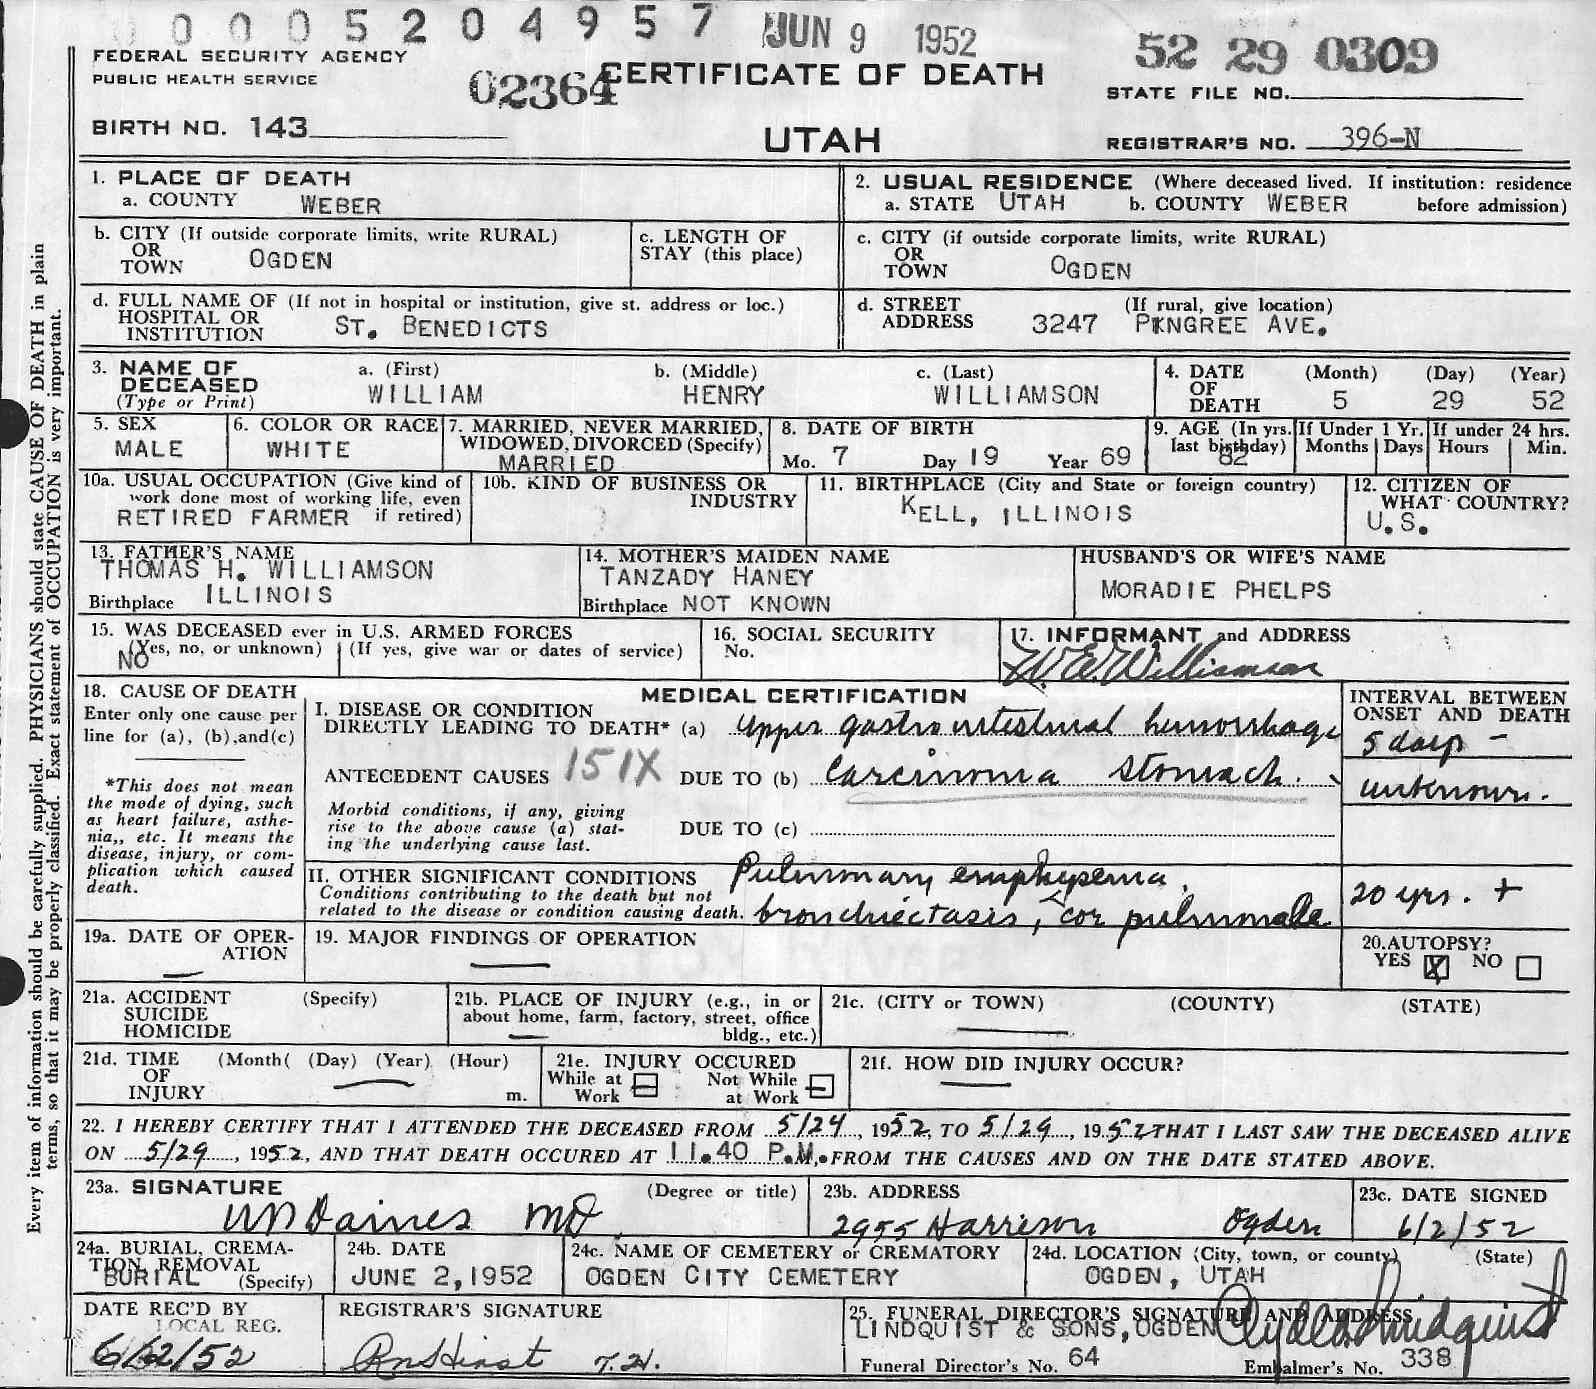 0 0 0 5 2 0 4 9 5 7 JUN 9 1952
52 29 0309
FEDERAL SECURITY AGENCY
PUBLIC HEALTH SERVICE
02364
CERTIFICATE OF DEATH
STATE FILE NO.
BIRTH NO. 143
UTAH
REGISTRAR'S NO. 396-N
1. PLACE OF DEATH
a. COUNTY WEBER
2. USUAL RESIDENCE (Where deceased lived. If institution: residence
a. STATE UTAH b. COUNTY WEBER before admission)
b. CITY (If outside corporate limits, write RURAL)
OR
TOWN OGDEN
c. LENGTH OF
STAY (this place)
c. CITY (if outside corporate limits, write RURAL)
OR
TOWN OGDEN
d. FULL NAME OF (If not in hospital or institution, give st. address or loc.)
HOSPITAL OR
INSTITUTION ST. BENEDICTS
d. STREET (If rural, give location)
ADDRESS 3247 PINGREE AVE.
3. NAME OF
DECEASED
(Type or Print)
a. (First)
WILLIAM
b. (Middle)
HENRY
c. (Last)
WILLIAMSON
4. DATE (Month) (Day) (Year)
OF
DEATH 5 29 52
5. SEX
MALE
6. COLOR OR RACE
WHITE
7. MARRIED, NEVER MARRIED,
WIDOWED, DIVORCED (Specify)
MARRIED
8. DATE OF BIRTH
Mo. 7 Day 19 Year 69
9. AGE (In yrs.
last birthday)
82
If Under 1 Yr.
Months Days
If under 24 hrs.
Hours Min.
10a. USUAL OCCUPATION (Give kind of
work done most of working life, even
RETIRED FARMER if retired)
10b. KIND OF BUSINESS OR
INDUSTRY
11. BIRTHPLACE (City and State or foreign country)
KELL, ILLINOIS
12. CITIZEN OF
WHAT COUNTRY?
U.S.
13. FATHER'S NAME
THOMAS H. WILLIAMSON
Birthplace ILLINOIS
14. MOTHER'S MAIDEN NAME
TANZADY HANEY
Birthplace NOT KNOWN
HUSBAND'S OR WIFE'S NAME
MORADIE PHELPS
15. WAS DECEASED ever in U.S. ARMED FORCES
(Yes, no, or unknown) (If yes, give war or dates of service)
NO
16. SOCIAL SECURITY
No.
17. INFORMANT and ADDRESS
W. E. Williamson
18. CAUSE OF DEATH
Enter only one cause per
line for (a), (b),and(c)
*This does not mean
the mode of dying, such
as heart failure, asthe-
nia,, etc. It means the
disease, injury, or com-
plication which caused
death.
MEDICAL CERTIFICATION
I. DISEASE OR CONDITION
DIRECTLY LEADING TO DEATH* (a) Upper gastro intestinal hemorrhage
ANTECEDENT CAUSES 151X DUE TO (b) Carcinoma stomach.
Morbid conditions, if any, giving
rise to the above cause (a) stat-
ing the underlying cause last.
DUE TO (c)
INTERVAL BETWEEN
ONSET AND DEATH
5 days -
unknown.
II. OTHER SIGNIFICANT CONDITIONS Pulmonary emphysema,
Conditions contributing to the death but not
related to the disease or condition causing death. bronchiectasis, cor pulmonale
20 yrs. +
19a. DATE OF OPER-
ATION
19. MAJOR FINDINGS OF OPERATION
20.AUTOPSY?
YES X NO
21a. ACCIDENT (Specify)
SUICIDE
HOMICIDE
21b. PLACE OF INJURY (e.g., in or
about home, farm, factory, street, office
bldg., etc.)
21c. (CITY or TOWN) (COUNTY) (STATE)
21d. TIME (Month( (Day) (Year) (Hour)
OF
INJURY m.
21e. INJURY OCCURED
While at Work
Not While at Work
21f. HOW DID INJURY OCCUR?
22. I HEREBY CERTIFY THAT I ATTENDED THE DECEASED FROM 5/24, 1952, TO 5/29, 1952 THAT I LAST SAW THE DECEASED ALIVE
ON 5/29, 1952, AND THAT DEATH OCCURED AT 11.40 P.M, FROM THE CAUSES AND ON THE DATE STATED ABOVE.
23a. SIGNATURE (Degree or title)
Daines MD
23b. ADDRESS
2955 Harrison Ogden
23c. DATE SIGNED
6/2/52
24a. BURIAL, CREMA-
TION, REMOVAL
BURIAL (Specify)
24b. DATE
JUNE 2,1952
24c. NAME OF CEMETERY or CREMATORY
OGDEN CITY CEMETERY
24d. LOCATION (City, town, or county) (State)
OGDEN, UTAH
DATE REC'D BY
LOCAL REG.
6/2/52
REGISTRAR'S SIGNATURE
25. FUNERAL DIRECTOR'S SIGNATURE AND ADDRESS
LINDQUIST & SONS, OGDEN Clyde Lindquist
Funeral Director's No. 64 Embalmer's No. 338
Every item of information should be carefully supplied. PHYSICIANS should state CAUSE OF DEATH in plain
terms, so that it may be properly classified. Exact statement of OCCUPATION is very important.